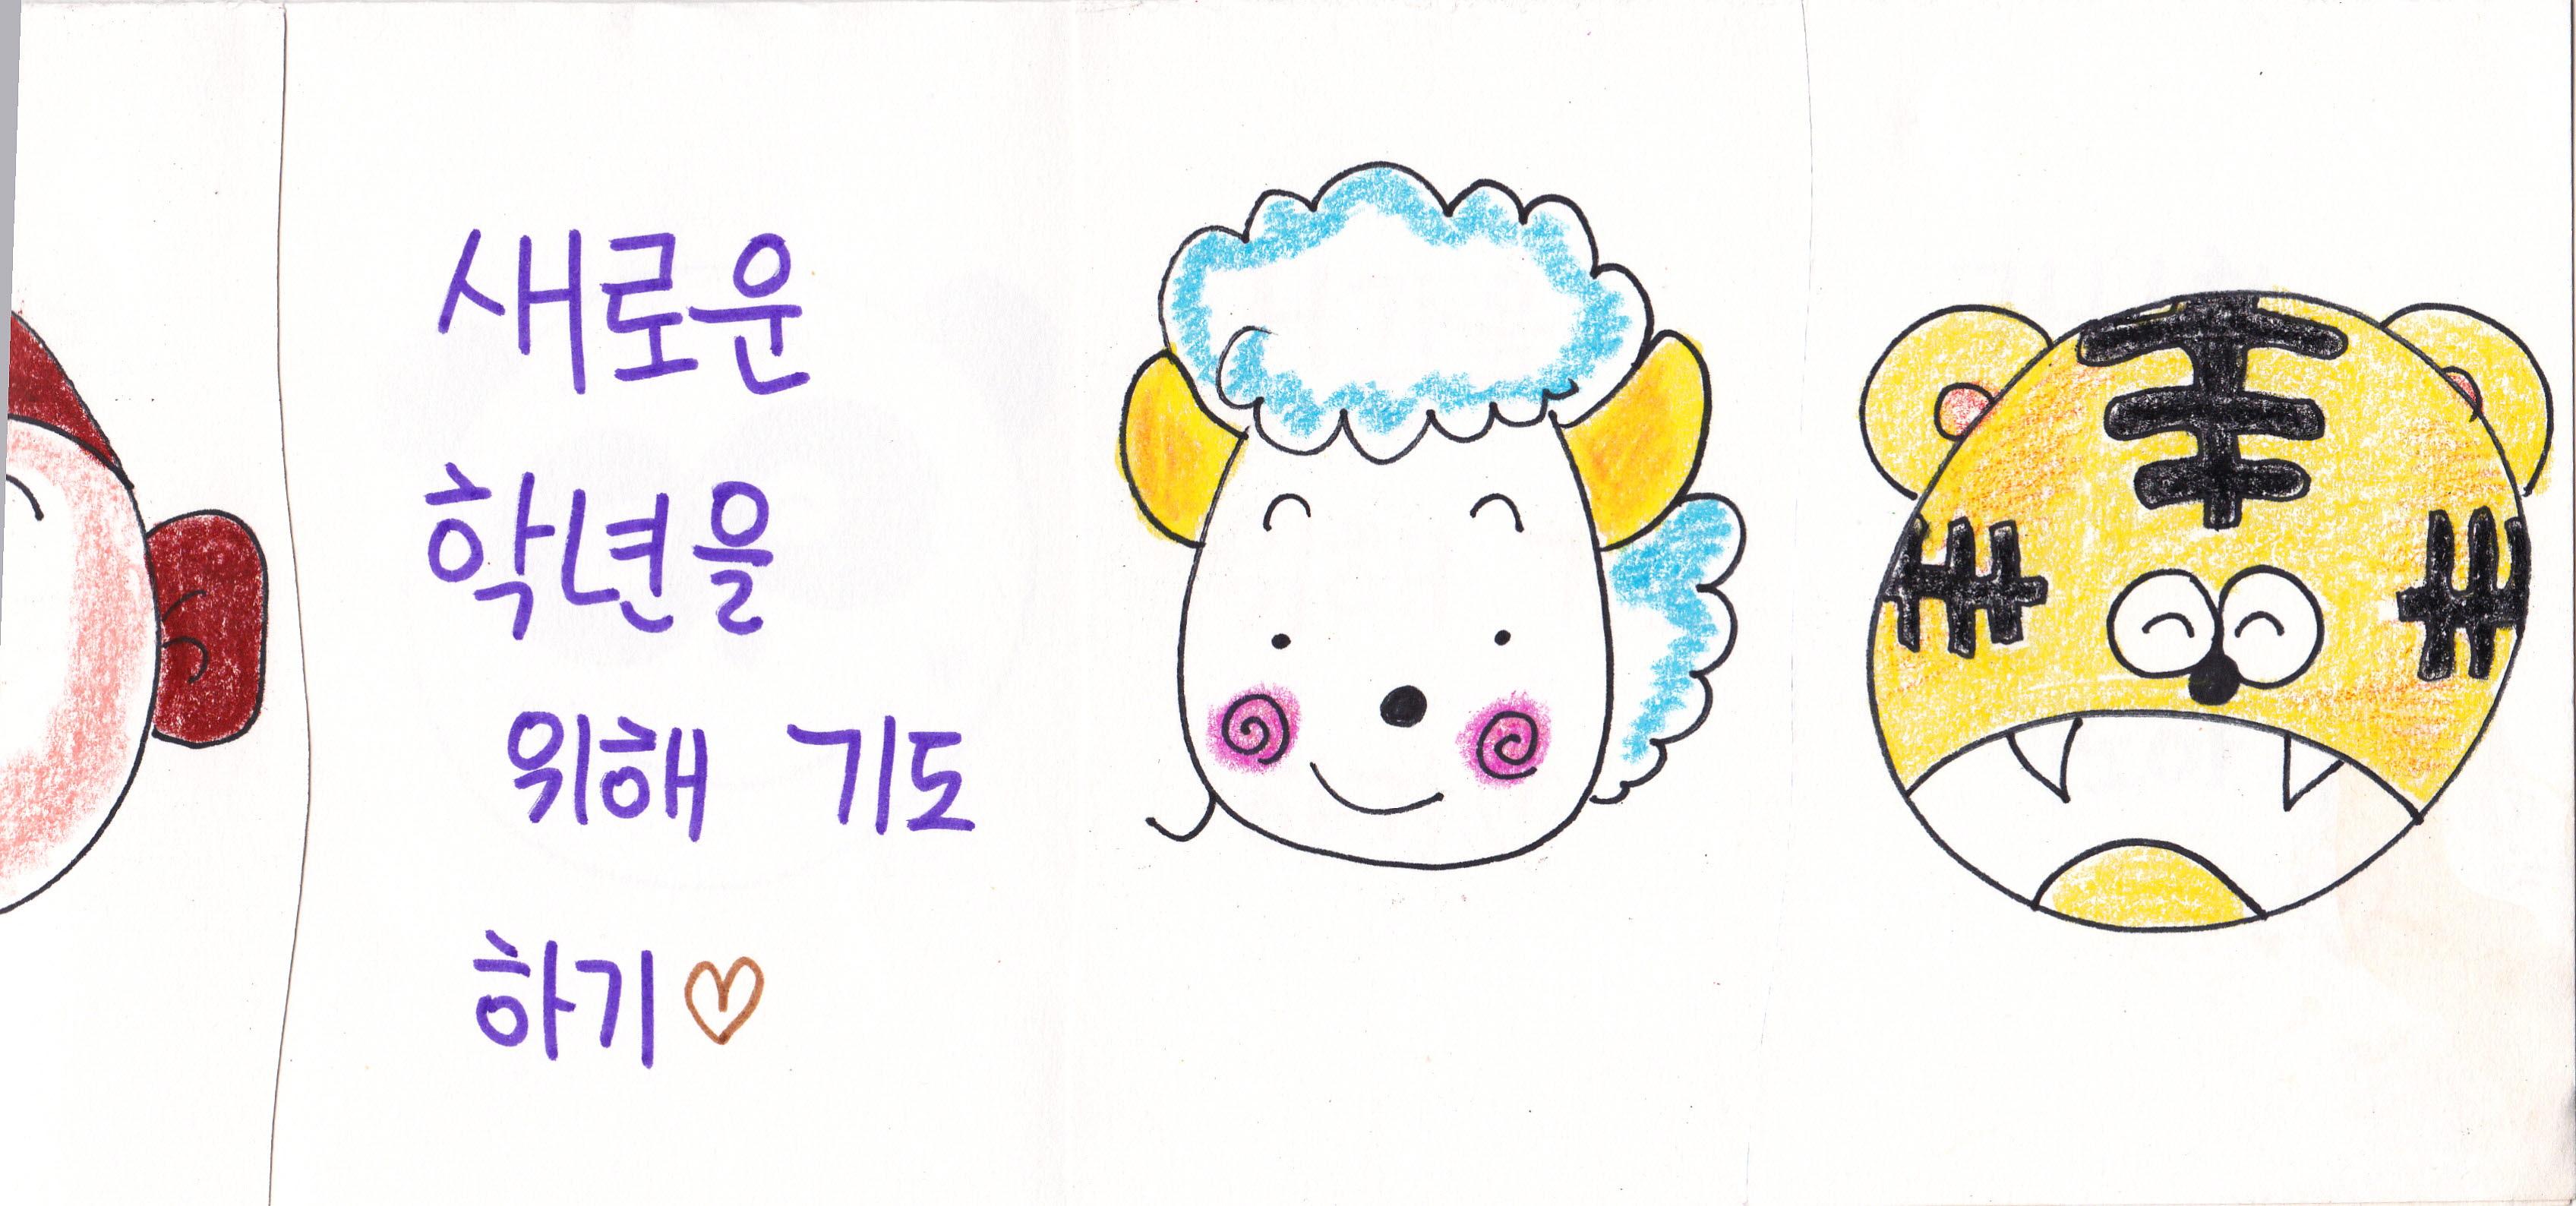 새로운
학년을
위해 기도
하기♡